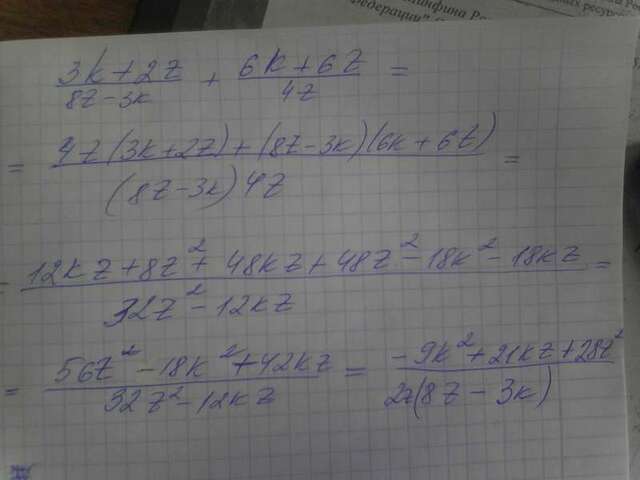 инфина Ро
Федерации"
ресурсо
(3k+2z)/(8z-3k) + (6k+6z)/(4z) =
= (4z(3k+2z)+(8z-3k)(6k+6z))/((8z-3k)4z) =
= (12kz+8z²+48kz+48z²-18k²-18kz)/(32z²-12kz) =
= (56z²-18k²+42kz)/(32z²-12kz) = (-9k²+21kz+28z²)/(2z(8z-3k))